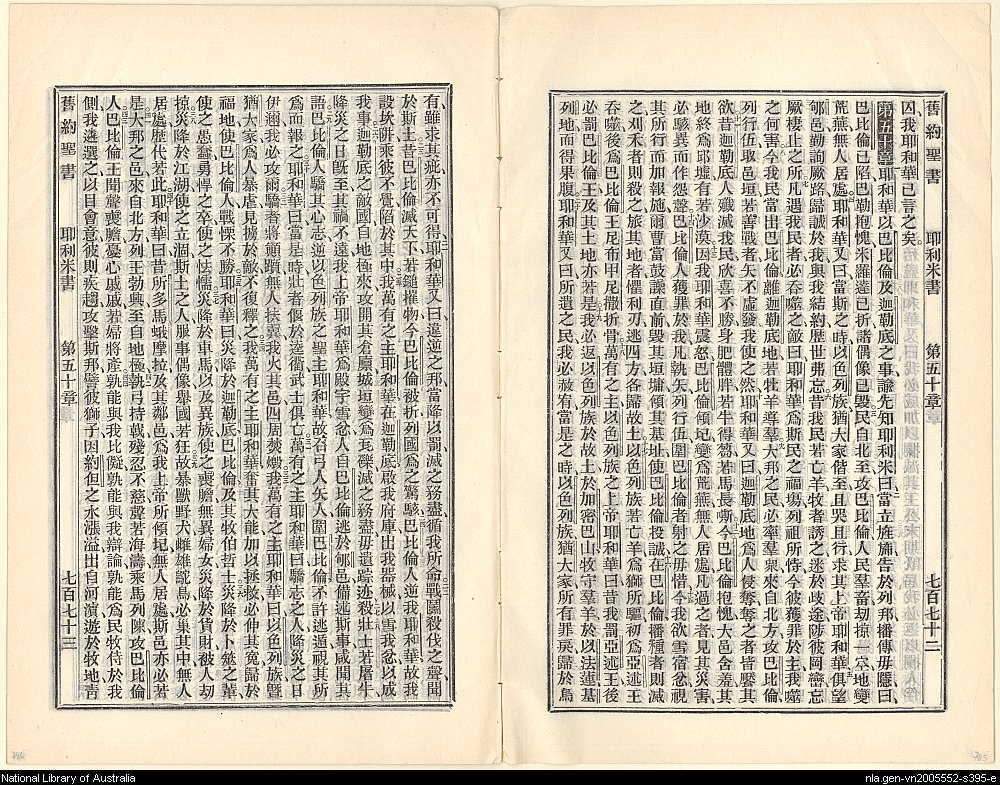 舊約聖書 耶利米書 第五十章 七百七十二
囚我耶和華已言之矣
第五十章耶和華以巴比倫及迦勒底之事諭先知耶利米曰當立旌旆告於列邦播傳毋隱曰
巴比倫已陷巴勒抱愧米羅達已折諸偶像已毀民自北至攻巴比倫人民羣畜劫掠一空地變
荒蕪無人居處耶和華又曰當斯之時以色列族猶大家偕至且哭且行求其上帝耶和華俱望
郇邑勤詢厥路歸誠於我與我結約歷世弗忘昔我民若亡羊牧者誘之迷於歧途陟彼岡巒忘
厥棲止之所凡遇我民者必吞噬之敵曰耶和華爲斯民之福場列祖所恃今彼獲罪於主我噬
之何害今我民當出巴比倫離迦勒底地若牡羊導羣大邦之民必率羣衆來自北方攻巴比倫
列行伍取邑垣若善戰者矢不虛發我使之然耶和華又曰迦勒底地爲人侵奪奪之者皆饜其
欲昔迦勒底人殲滅我民欣喜不勝身肥體胖若牛得蒭若馬長嘶今巴比倫抱愧大邑含羞其
地終爲邱墟有若沙漠因我耶和華震怒巴比倫傾圮變爲荒蕪無人居處凡過之者見其災害
必駭異而作怨聲巴比倫人獲罪於我凡執矢列行伍圍巴比倫者射之毋惜今我欲雪宿忿視
其所行而加報施爾曹當鼓譟直前毀其垣墉傾其基址使巴比倫投誠在巴比倫播種者則滅
之刈禾者則殺之旅其地者懼利刃逃四方各歸故土以色列族若亡羊爲獅所驅初爲亞述王
吞噬後爲巴比倫王尼布甲尼撒折骨萬有之主以色列族之上帝耶和華曰昔我罰亞述王後
必罰巴比倫王及其土地亦若是我必返以色列族於故土於加密巴山牧守羣羊於以法蓮基
列地而得果腹耶和華又曰所遺之民我必赦宥當是之時以色列族猶大家所有罪戾歸於烏
有雖求其疵亦不可得耶和華又曰違逆之邦當降以罰滅之務盡循我所命戰鬭殺伐之聲聞
於斯土昔巴比倫滅天下若鎚摧物今巴比倫被折列國爲之驚駭巴比倫人逆我耶和華故我
設坎阱乘彼不覺陷於其中我萬有之主耶和華在迦勒底啟我府庫出我器械以雪我忿以成
我事迦勒底之敵國自地極來攻開其倉廩城垣變爲瓦礫滅之務盡毋遺踪迹殺壯士若屠牛
降災之日旣至其禍不遠我上帝耶和華爲殿宇雪忿人自巴比倫逃於郇邑備述斯事咸聞其
語巴比倫人驕其心志逆以色列族之聖主耶和華故召弓人矢人圍巴比倫不許逃遁視其所
爲而報之耶和華曰當是時壯者偃於逵衢武士俱亡萬有之主耶和華曰驕志之人降災之日
伊邇我必攻爾驕者將顛躓無人扶震我火其邑四周焚燬我萬有之主耶和華曰以色列族曁
猶大家爲人暴虐見擄於敵不復釋之我萬有之主耶和華奮其大能加以拯救必伸其寃歸於
福地使巴比倫人戰慄不勝耶和華曰災降於迦勒底巴比倫及其牧伯哲士災降於卜筮之輩
使之愚蠢勇悍之卒使之怯懦災降於車馬以及異族使之喪膽無異婦女災降於貨財被人刧
掠災降於江湖使之立涸斯土之人服事偶像舉國若狂故暴獸野犬雌雄鴕鳥必巢其中無人
居處歷代若此耶和華曰昔所多馬蛾摩拉及其鄰邑爲我上帝所傾圮無人居處斯邑亦必若
是大邦之邑來自北方列王勃興至自地極執弓持戟殘忍不慈聲若海濤乘馬列陳攻巴比倫
人巴比倫王聞聲喪膽憂心戚戚若婦將產孰能與我比儗孰能與我辯論孰能爲民牧侍於我
側我遴選之以目會意彼則疾趨攻擊斯邦譬彼獅子因約但之水漲溢出自河濱遊於牧地靑
舊約聖書 耶利米書 第五十章 七百七十三
786
785
National Library of Australia
nla.gen-vn2005552-s395-e